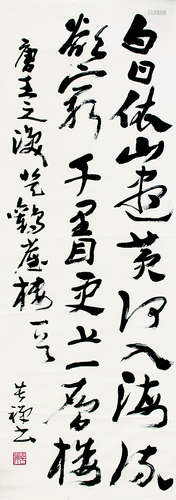 白日依山尽黄河入海流
欲穷千里目更上一层楼
唐王之涣登鹳雀楼一首